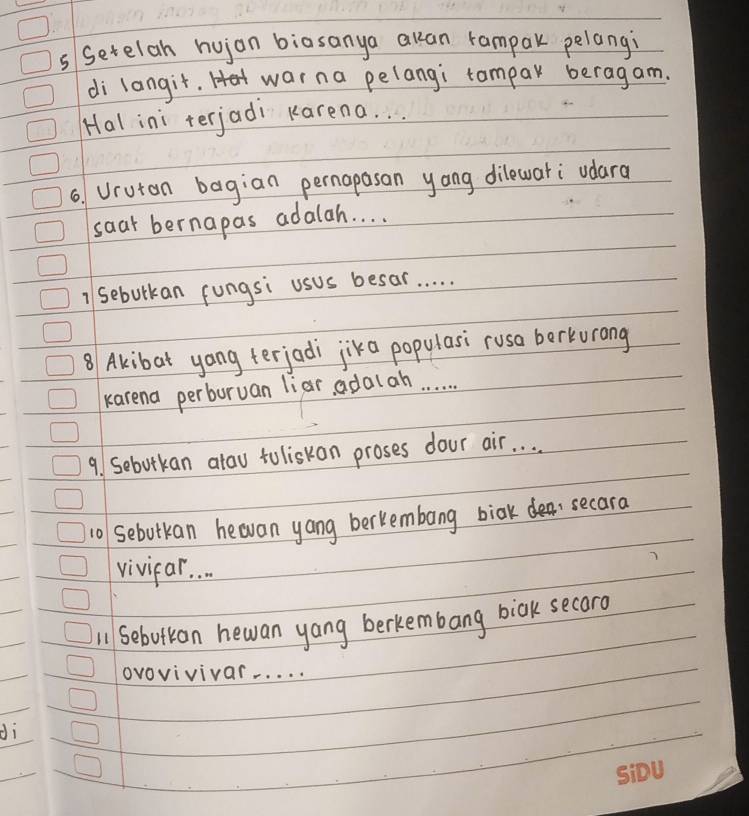 5 Setelah hujan biasanya akan tampak pelangi
di langit. warna pelangi tampak beragam.
Hal ini terjadi karena...
6. Urutan bagian pernapasan yang dilewati udara
saat bernapas adalah....
7 Sebutkan fungsi usus besar.....
8 Akibat yang terjadi jika populasi rusa berkurang
karena perburuan liar adalah......
9. Sebutkan atau tuliskan proses daur air....
10 Sebutkan hewan yang berkembang biak secara
vivifar....
11 Sebutkan hewan yang berkembang biak secara
ovovivivar.....
di
SiDU